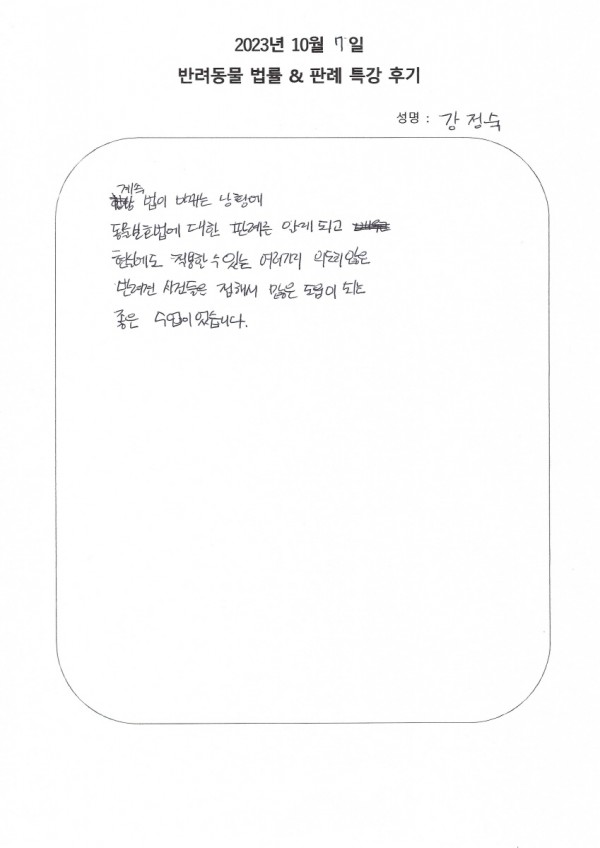 2023년 10월 7일
반려동물 법률 & 판례 특강 후기
성명 : 강 정숙
계속
법이 바뀌는 상황에
동물보호법에 대한 판례를 알게 되고
현실에도 적용할 수 있는 여러가지
반려견 사건들을 접해서 많은 도움이 되는
좋은 수업이었습니다.